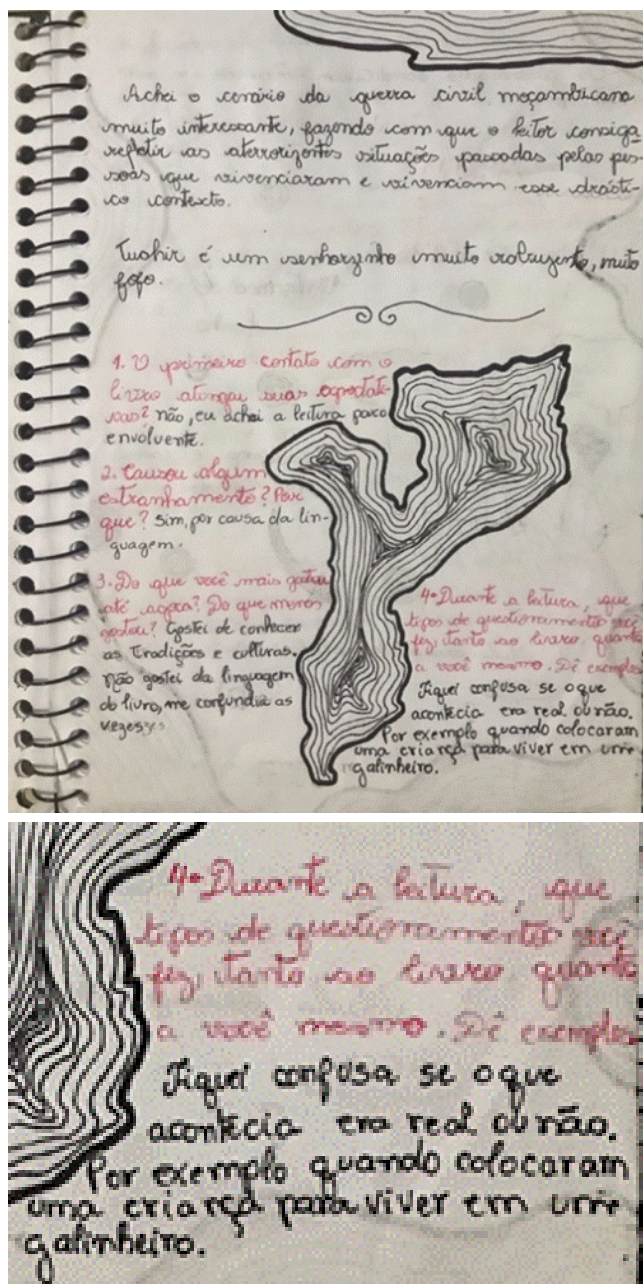 Achei o cenário da guerra civil moçambicana
muito interessante, fazendo com que o leitor consiga
refletir as aterrorizantes situações passadas pelas pes-
soas que vivenciaram e vivenciam esse drásti-
co contexto.
Tuahir é um senhorzinho muito rabugento, muito
fofo.
1. O primeiro contato com o
livro atengau suas expectati-
vas? não, eu achei a leitura pouco
envolvente.
2. Causou algum
estranhamento? Por
que? Sim, por causa da lin-
guagem.
3. Do que você mais gostou
até agora? Do que menos
gostou? Gostei de conhecer
as Tradições e culturas.
não gostei da linguagem
do livro, me confundia as
vezes
4. Durante a leitura, que
tipos de questionamentos você
fez, tanto ao livro quanto
a você mesmo. Dê exemplos
Fiquei confusa se o que
acontecia era real ou não.
Por exemplo quando colocaram
uma criança para viver em um
galinheiro.
4. Durante a leitura, que
tipos de questionamentos você
fez, tanto ao livro quanto
a você mesmo. Dê exemplos
Fiquei confusa se o que
acontecia era real ou não.
Por exemplo quando colocaram
uma criança para viver em um
galinheiro.